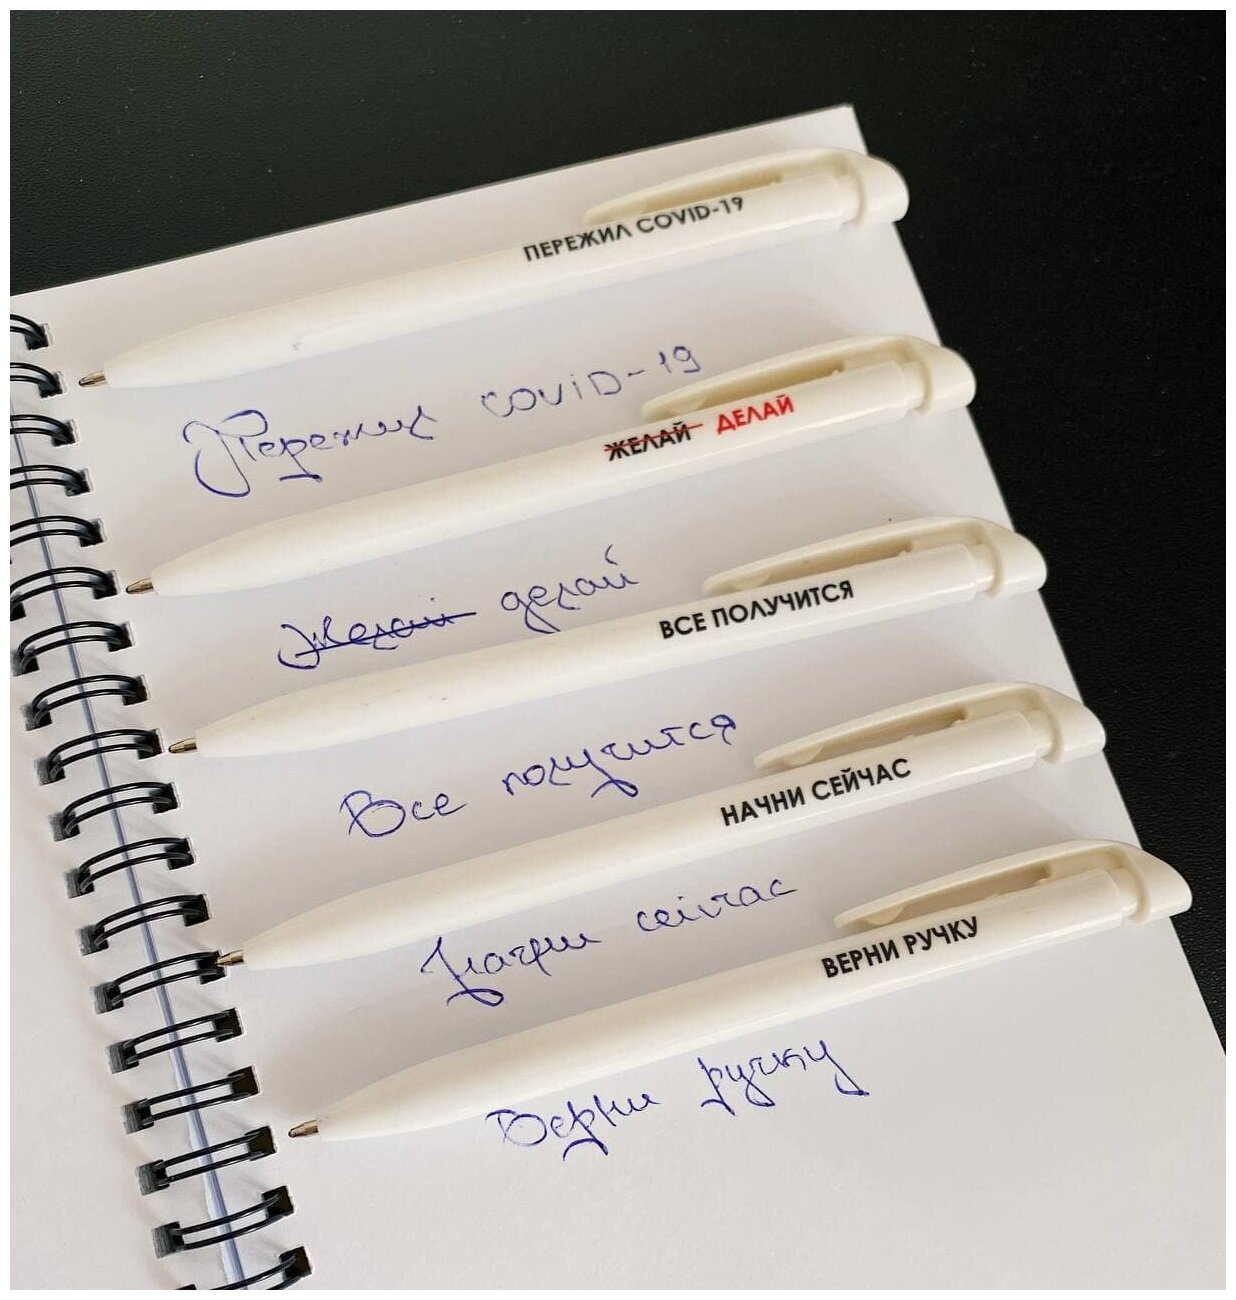 ПЕРЕЖИЛ COVID-19
Пережил COVID-19
ЖЕЛАЙ ДЕЛАЙ
Желай делай
ВСЕ ПОЛУЧИТСЯ
Все получится
НАЧНИ СЕЙЧАС
Начни сейчас
ВЕРНИ РУЧКУ
Верни ручку